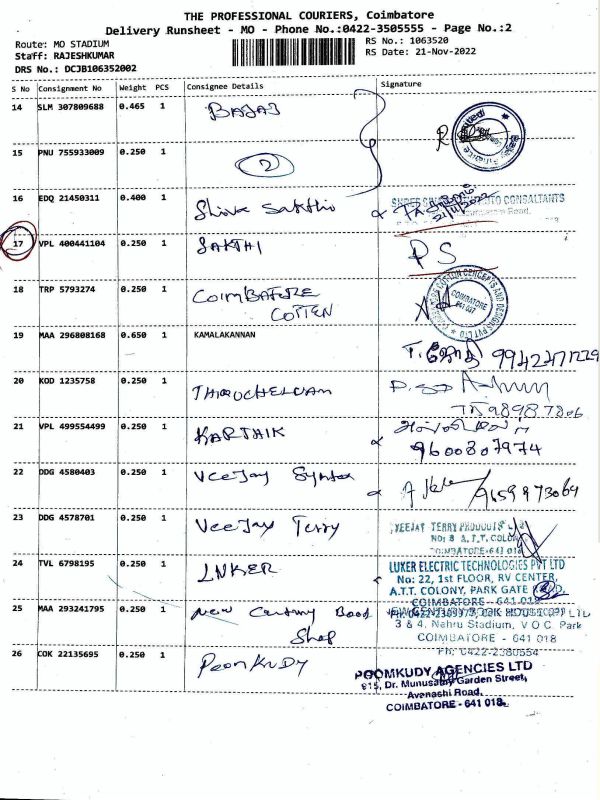 THE PROFESSIONAL COURIERS, Coimbatore
Delivery Runsheet - MO - Phone No.:0422-3505555 - Page No.:2
Route: MO STADIUM
RS No.: 1063520
Staff: RAJESHKUMAR
RS Date: 21-Nov-2022
DRS No.: DCJB106352002
S No Consignment No Weight PCS Consignee Details Signature
14 SLM 307809688 0.465 1 BAJAJ
15 PNU 755933009 0.250 1 2
16 EDQ 21450311 0.400 1 Shiva Sakthi
CONSALTANTS
Road,
21/11/2022
17 VPL 400441104 0.250 1 SAKTHI PS
18 TRP 5793274 0.250 1 COIMBATORE COTTEN
COIMBATORE
641 037
19 MAA 296808168 0.650 1 KAMALAKANNAN
20 KOD 1235758 0.250 1 THIRUCHELVAM
21 VPL 499554499 0.250 1 KARTHIK
9600807974
22 DDG 4580403 0.250 1 VeeJay Syntex
23 DDG 4578701 0.250 1 VeeJay Terry
VEEJAY TERRY PRODUCTS
No: 8 A.T.T. COLONY
COIMBATORE-641 018
24 TVL 6798195 0.250 1 LNKER
LUXER ELECTRIC TECHNOLOGIES PVT LTD
No: 22, 1st FLOOR, RV CENTER,
A.T.T. COLONY, PARK GATE
COIMBATORE - 641 018
25 MAA 293241795 0.250 1 New Century Book Shop
NEW CENTURY BOOK HOUSE (P) LTD
3 & 4, Nehru Stadium, V O C. Park
COIMBATORE - 641 018
Ph: 0422-2380554
26 COK 22135695 0.250 1 Poomkudy
POOMKUDY AGENCIES LTD
Dr. Munusamy Garden Street,
Avenashi Road,
COIMBATORE - 641 018.